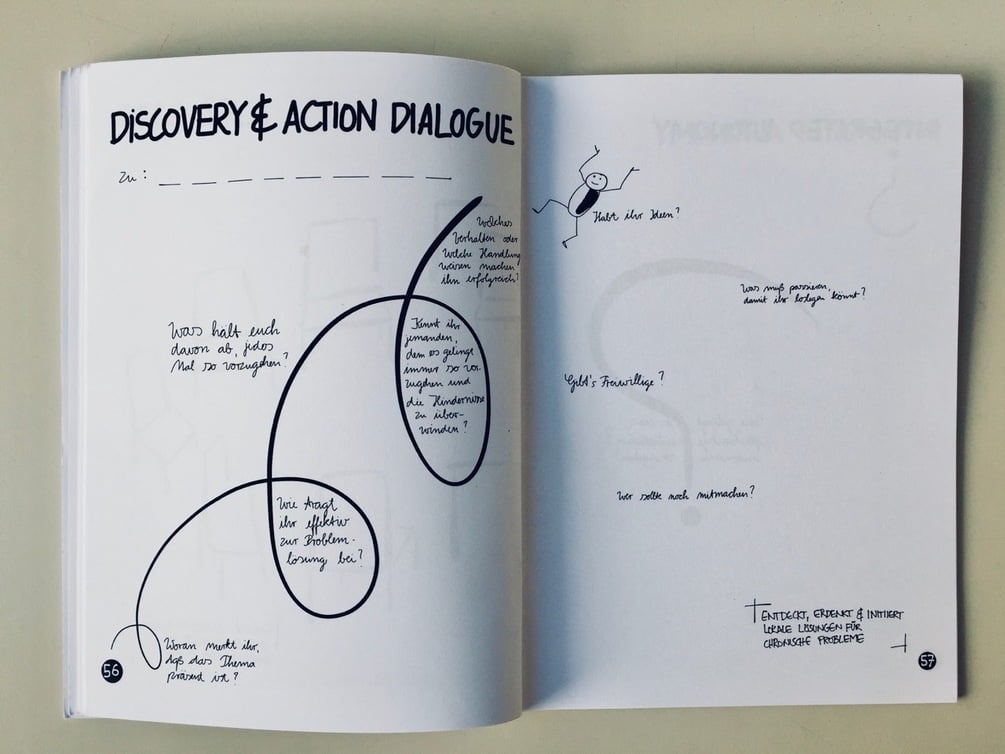 DISCOVERY & ACTION DIALOGUE
zu: _ _ _ _ _ _ _ _ _
Welches
Verhalten oder
welche Handlungs
weisen machen
ihn erfolgreich?
Kennt ihr
jemanden,
dem es gelingt
immer so vor-
zugehen und
die Hindernisse
zu über-
winden?
Was hält euch
davon ab, jedes
Mal so vorzugehen?
Wie tragt
ihr effektiv
zur Problem-
lösung bei?
Woran merkt ihr,
daß das Thema
präsent ist?
56
Habt ihr Ideen?
Was muß passieren,
damit ihr loslegen könnt?
Gibt's Freiwillige?
Wer sollte noch mitmachen?
ENTDECKT, ERDENKT & INITIIERT
LOKALE LÖSUNGEN FÜR
CHRONISCHE PROBLEME
57